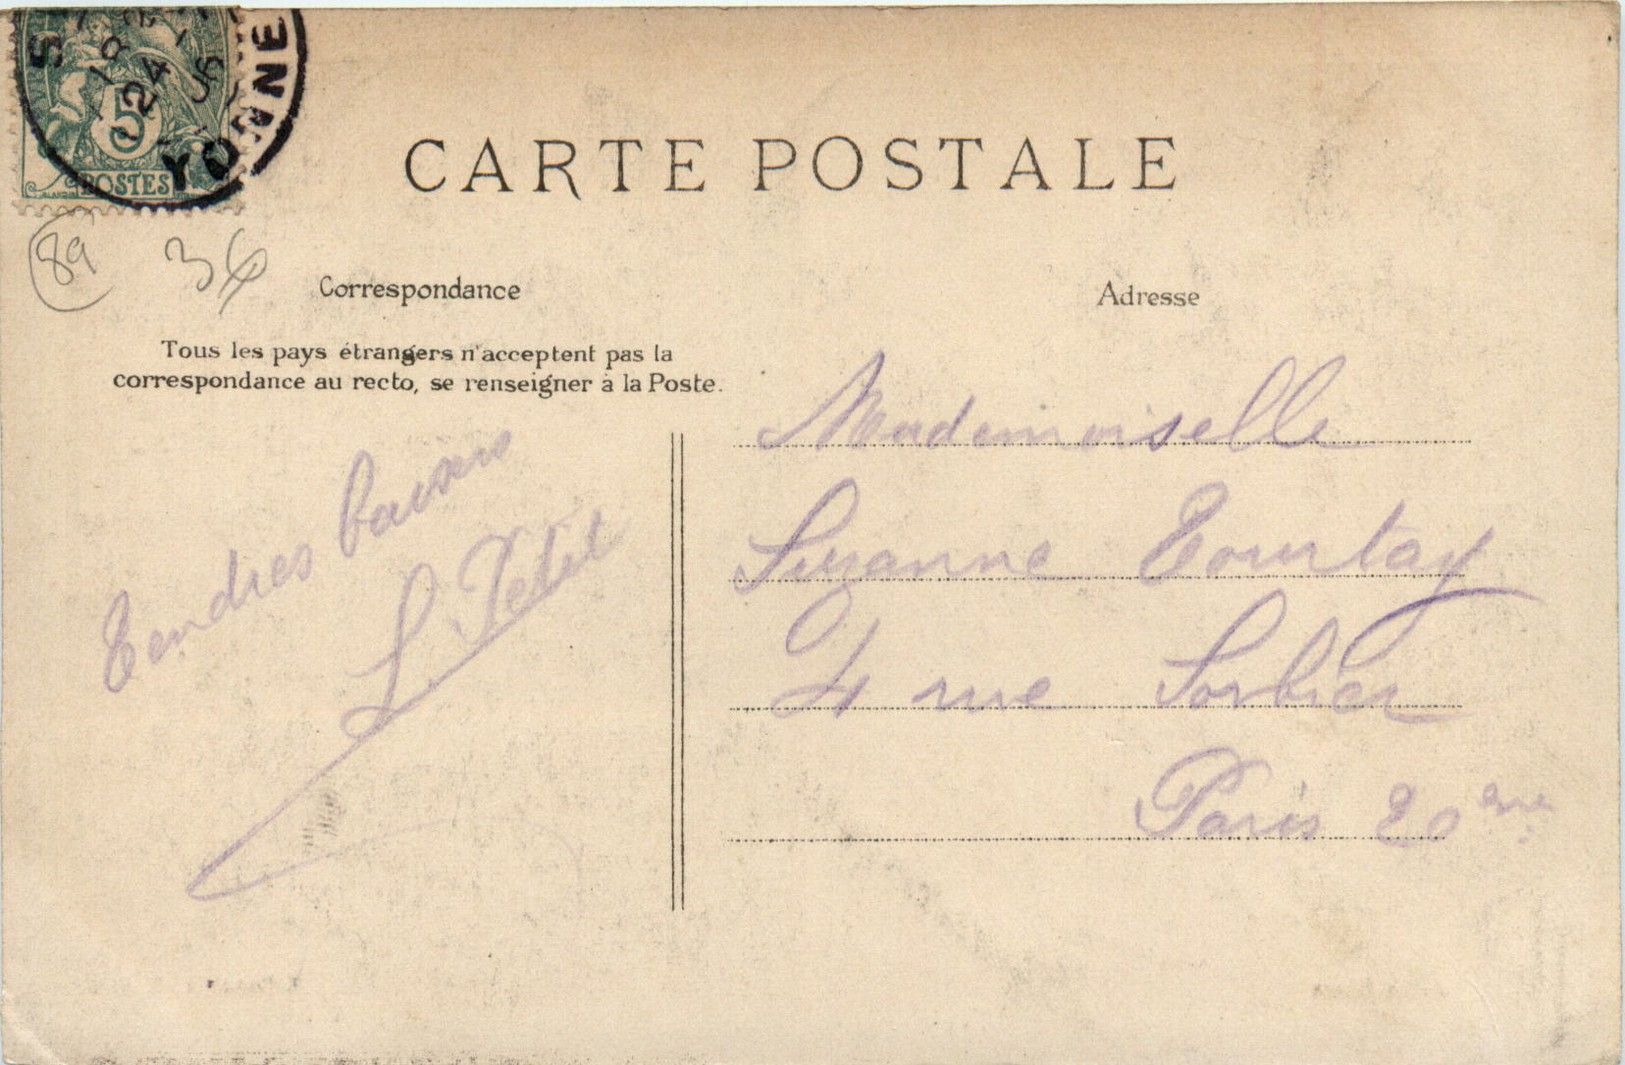 S
18
24
YONNE
5
POSTES
89
36
CARTE POSTALE
Correspondance
Adresse
Tous les pays étrangers n'acceptent pas la
correspondance au recto, se renseigner à la Poste.
Tendres baisers
L. Petit
Mademoiselle
Suzanne Tourtay
4 rue Sorbier
Paris 20 eme